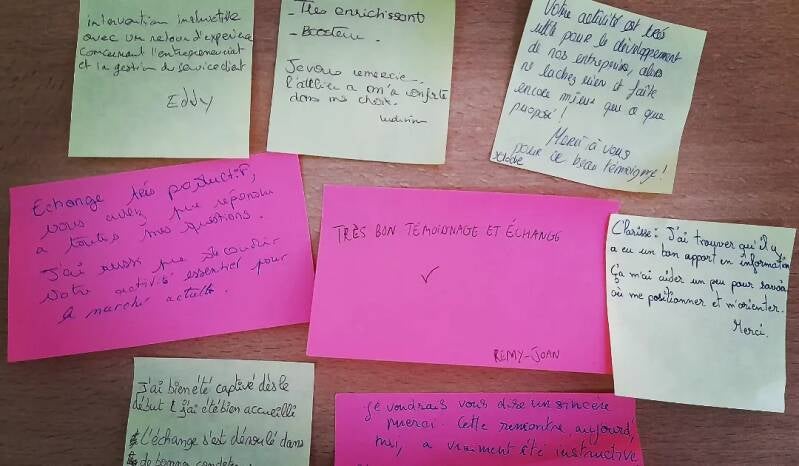 intervention instructive
avec un retour d'expérience
concernant l'entrepreneuriat
et la gestion du service client
EDDY
- Très enrichissant
- Booster
Je vous remercie
l'atelier a m'a conforté
dans mes choix.
Votre activité est très
utile pour le développement
de nos entreprises, alors
ne lachez rien et faite
encore mieux que ce que
proposé !
Merci à vous
pour ce beau témoignage !
Echange très productif,
vous avez pue répondre
a toutes mes questions.
J'ai aussi pue
votre activité essentiel pour
le marché actuelle.
TRÈS BON TÉMOIGNAGE ET ÉCHANGE
✓
REMY-JOAN
Clarisse : J'ai trouver qu'il y
a eu un bon apport en information
Ça m'ai aider un peu pour savoir
où me positionner et m'orienter.
Merci.
J'ai bien été captivé dès le
début & j'ai été bien accueillé
L'échange s'est déroulé dans
de bonne
je voudrais vous dire un sincère
merci. Cette rencontre, aujourd'
hui, a vraiment été instructive